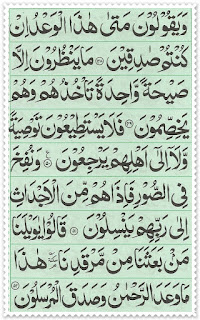 وَيَقُوْلُوْنَ مَتٰى هٰذَا الْوَعْدُ اِنْ
كُنْتُمْ صٰدِقِيْنَ ۝۴۸ مَا يَنْظُرُوْنَ اِلَّا
صَيْحَةً وَّاحِدَةً تَاْخُذُهُمْ وَهُمْ
يَخِصِّمُوْنَ ۝۴۹ فَلَا يَسْتَطِيْعُوْنَ تَوْصِيَةً
وَّلَاۤ اِلٰۤى اَهْلِهِمْ يَرْجِعُوْنَ ۝۵۰ وَنُفِخَ
فِى الصُّوْرِ فَاِذَا هُمْ مِّنَ الْاَجْدَاثِ
اِلٰى رَبِّهِمْ يَنْسِلُوْنَ ۝۵۱ قَالُوْا يٰوَيْلَنَا
مَنْۢ بَعَثَنَا مِنْ مَّرْقَدِنَا هٰذَا
مَا وَعَدَ الرَّحْمٰنُ وَصَدَقَ الْمُرْسَلُوْنَ ۝۵۲